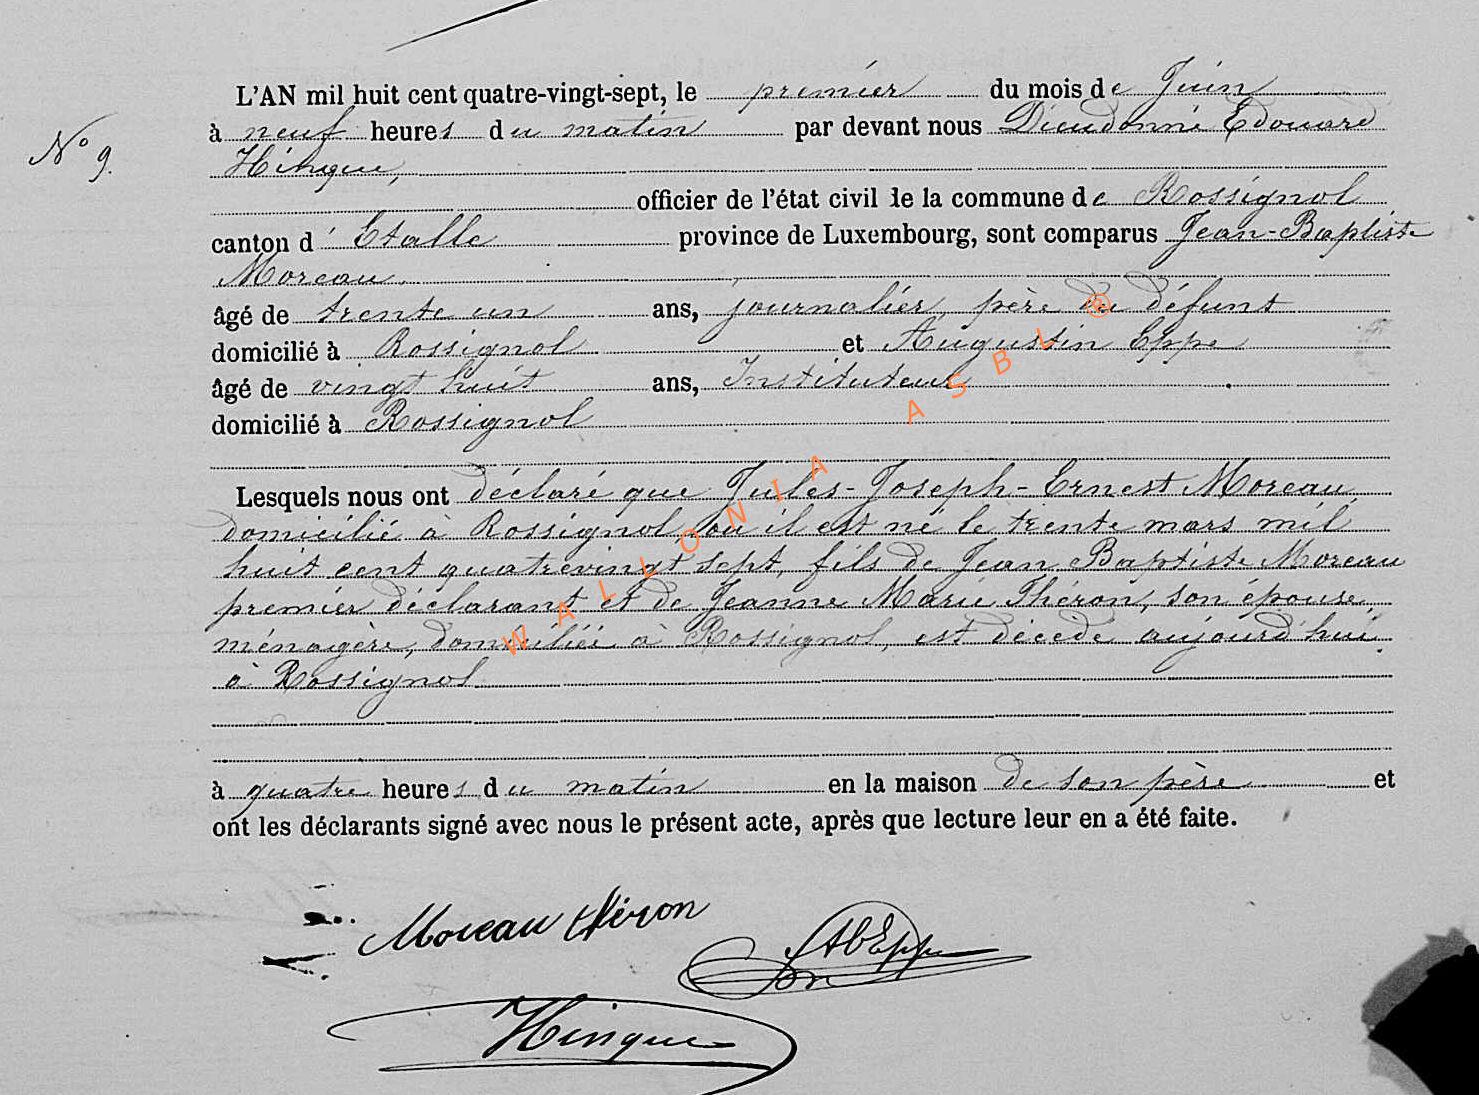 L'AN mil huit cent quatre-vingt-sept, le premier du mois de Juin
N° 9.
à neuf heures du matin par devant nous Dieudonné Edouard
Hinque,
officier de l'état civil de la commune de Rossignol
canton d'Etalle province de Luxembourg, sont comparus Jean-Baptiste
Moreau
âgé de trente un ans, journalier, père du défunt
domicilié à Rossignol et Augustin Eppe
âgé de vingt huit ans, Instituteur
domicilié à Rossignol
Lesquels nous ont déclaré que Jules-Joseph-Ernest Moreau,
domicilié à Rossignol, où il est né le trente mars mil
huit cent quatrevingt sept, fils de Jean Baptiste Moreau
premier déclarant et de Jeanne Marie Theron, son épouse,
ménagère, domiciliée à Rossignol, est décédé aujourd'hui
à Rossignol
à quatre heures du matin en la maison de son père et
ont les déclarants signé avec nous le présent acte, après que lecture leur en a été faite.
Moreau théron
Eppe
Hinque
WALLONIA ASBL ®